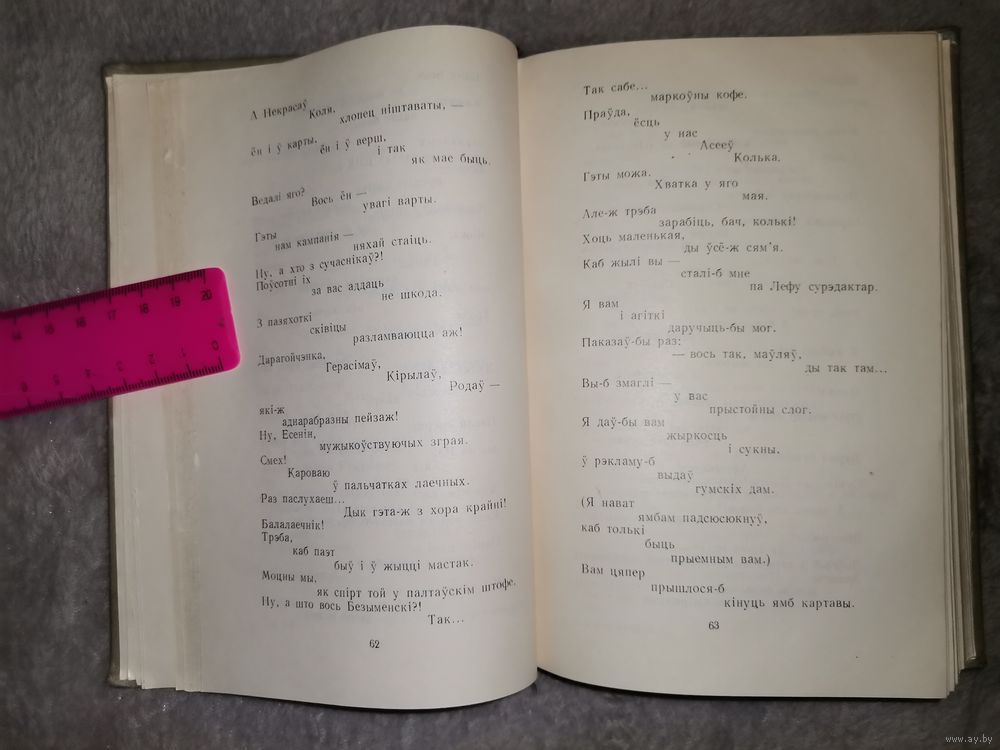 А Некрасаў
Коля,
хлопец ніштаваты, —
ён і ў карты,
ён і ў верш,
і так
як мае быць.
Ведалі яго?
Вось ён —
увагі варты.
Гэты
нам кампанія —
няхай стаіць.
Ну, а хто з сучаснікаў?!
Поўсотні іх
за вас аддаць
не шкода.
З пазяхоткі
сківіцы
разламваюцца аж!
Дарагойчэнка,
Герасімаў,
Кірылаў,
Родаў —
які-ж
аднарабразны пейзаж!
Ну, Есенін,
мужыкоўствуючых зграя.
Смех!
Кароваю
ў пальчатках лаечных.
Раз паслухаеш...
Дык гэта-ж з хора крайні!
Балалаечнік!
Трэба,
каб паэт
быў і ў жыцці мастак.
Моцны мы,
як спірт той у палтаўскім штофе.
Ну, а што вось Безыменскі?!
Так...
62
Так сабе...
маркоўны кофе.
Праўда,
ёсць
у нас
Асееў
Колька.
Гэты можа.
Хватка у яго
мая.
Але-ж трэба
зарабіць, бач, колькі!
Хоць маленькая,
ды ўсё-ж сям'я.
Каб жылі вы —
сталі-б мне
па Лефу сурэдактар.
Я вам
і агіткі
даручыць-бы мог.
Паказаў-бы раз:
— вось так, маўляў,
ды так там...
Вы-б змаглі —
у вас
прыстойны слог.
Я даў-бы вам
жыркосць
і сукны.
ў рэкламу-б
выдаў
гумскіх дам.
(Я нават
ямбам падсюсюкнуў,
каб толькі
быць
прыемным вам.)
Вам цяпер
прышлося-б
кінуць ямб картавы.
63
14 15 16 17 18 19 20
6 5 4 3 2 1 0
www.ay.by